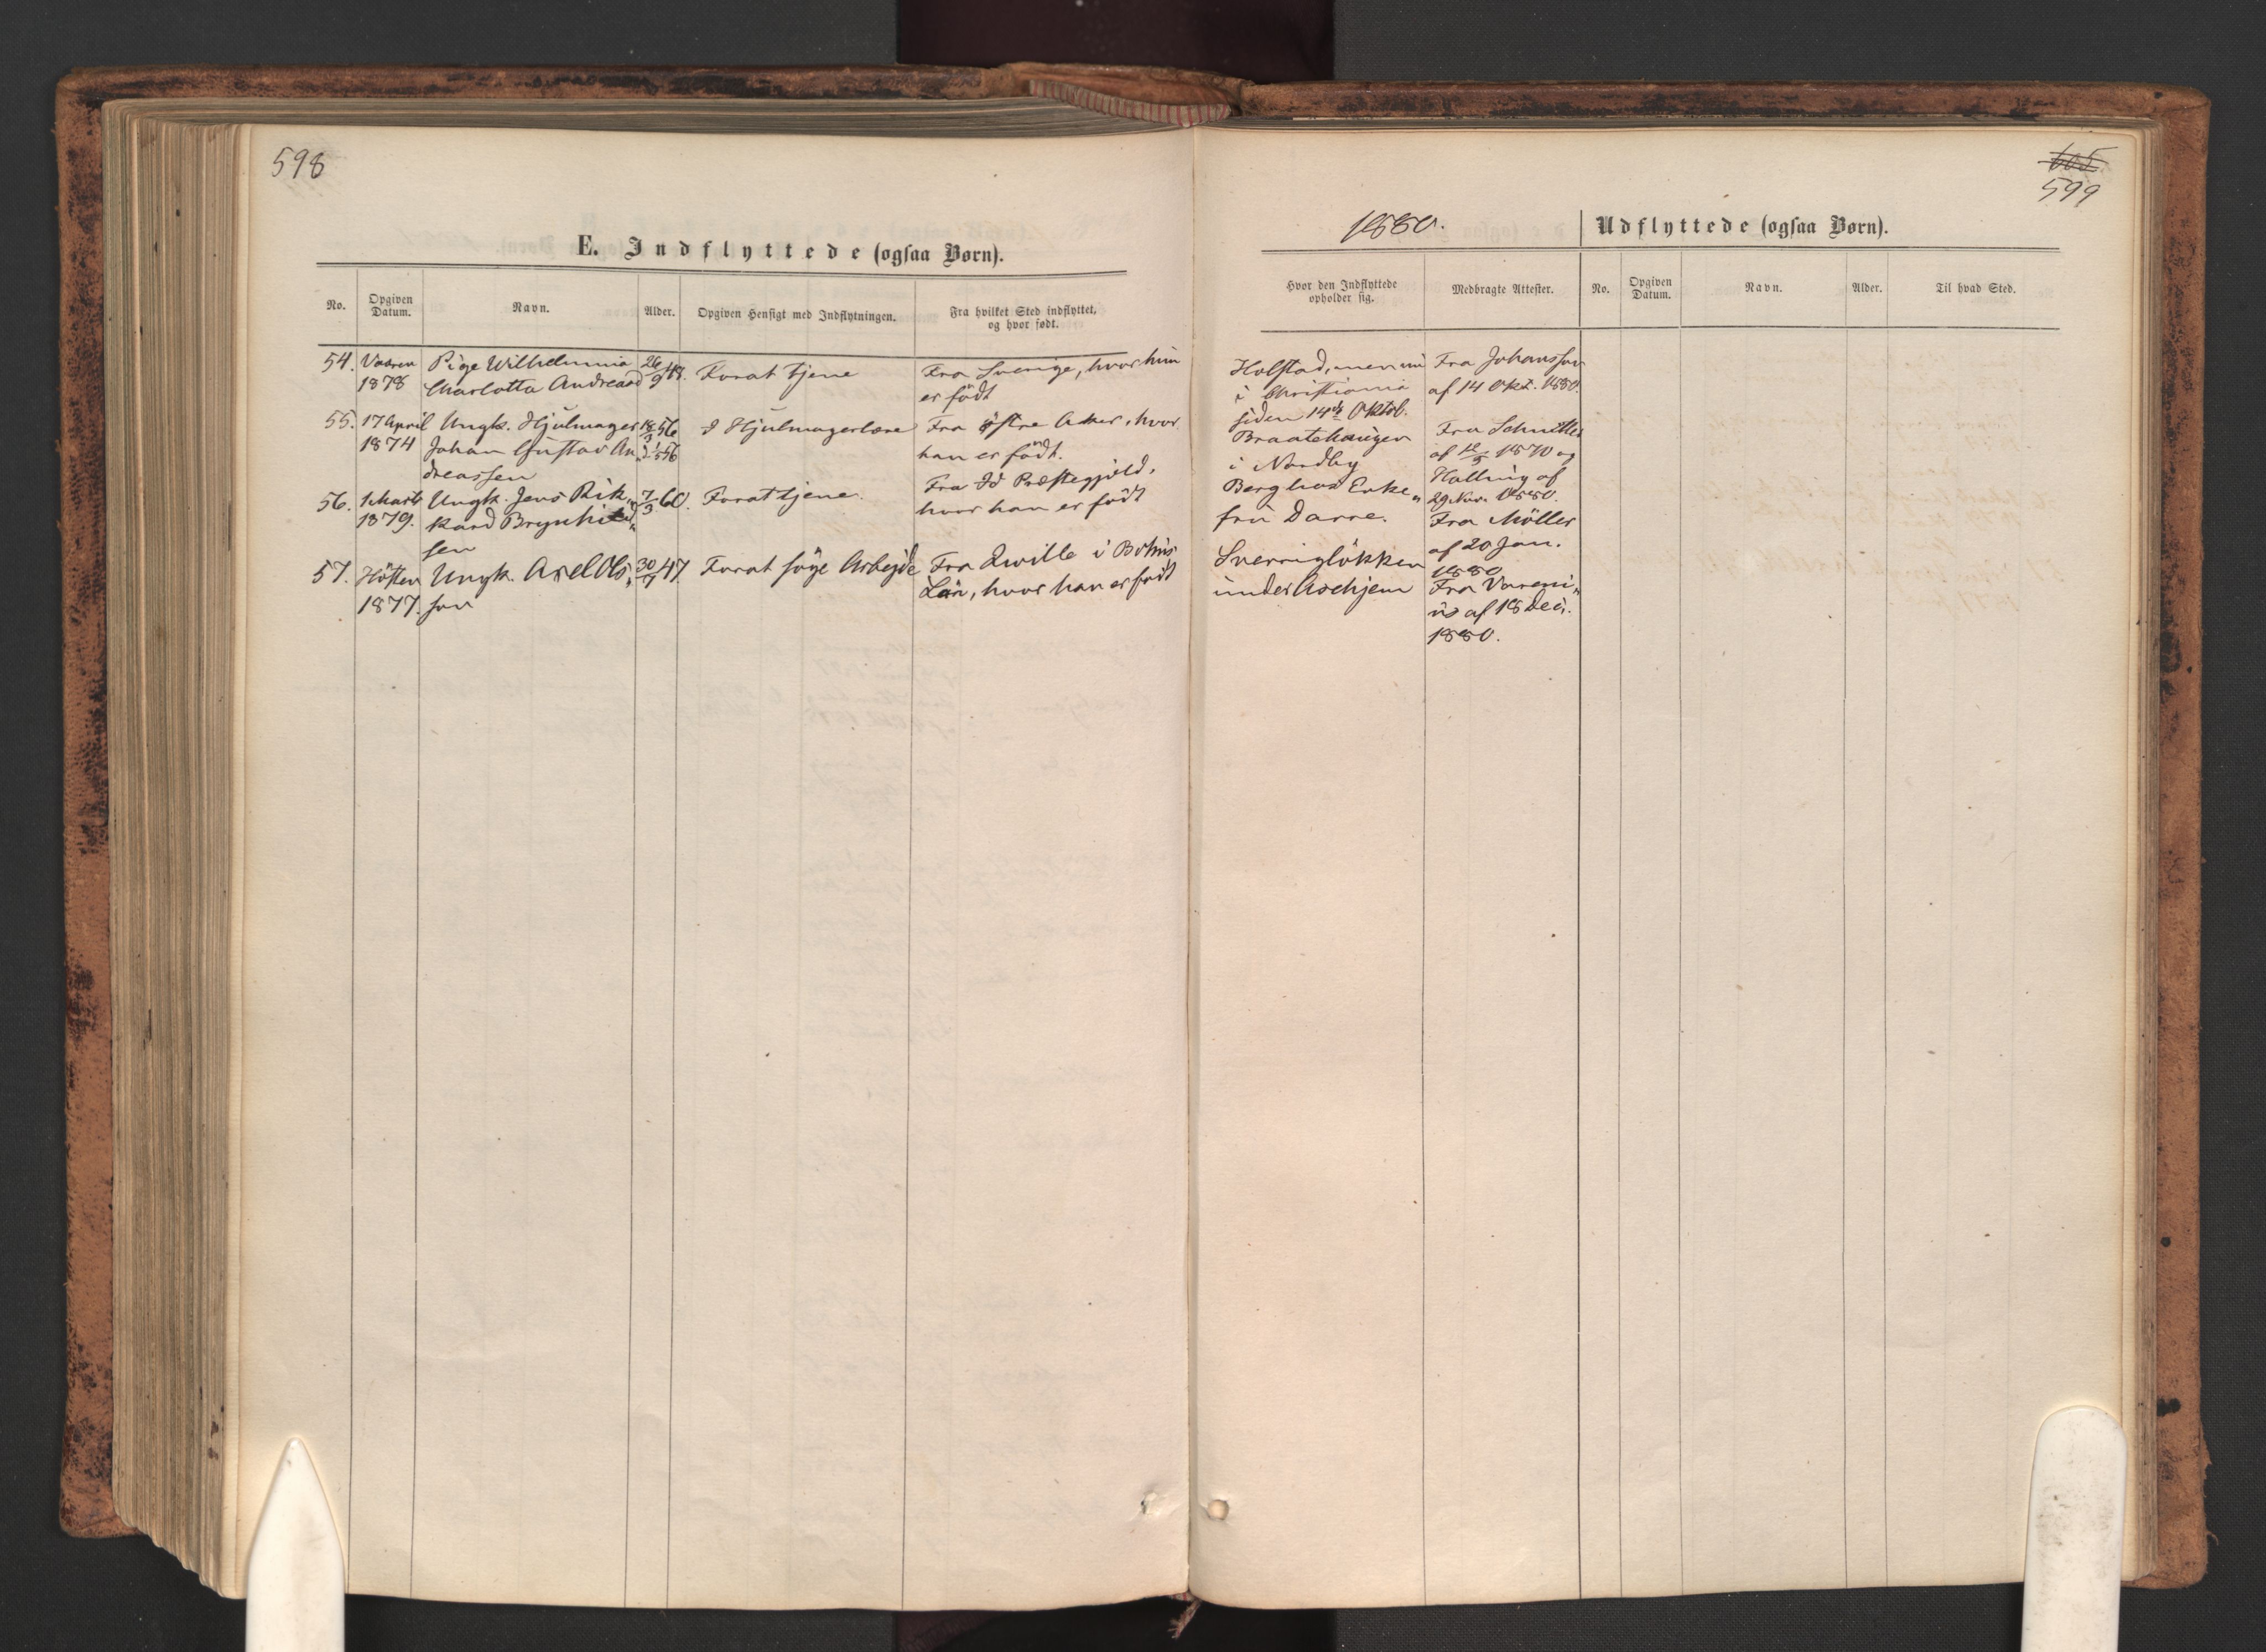 598
E. Indflyttede (ogsaa Børn).
No.
Opgiven Datum.
Navn.
Alder.
Opgiven Hensigt med Indflytningen.
Fra hvilket Sted indflyttet, og hvor født.
54. Vaaren 1878
Pige Wilhelmina
Charlotta Andreasd
26/9 48.
For at tjene
Fra Sverige, hvor hun
er född
55. 17 April 1874
Ungk. Hjulmager
Johan Gustav An
dreassen
18/3 56
2 1/5 56
I Hjulmagerlære
Fra östre Aker, hvor
han er født.
56. 1 Marts 1879.
Ungk. Jens Rik„
kard Brynhild„
sen
7/3 60.
For at tjene.
Fra Id Præstegjeld,
hvor han er född
57. Hösten 1877.
Ungk. Axel Ols„
son
30/7 47
For at söge Arbejde
Fra Qwille i Bohus
Län, hvor han er född
605
599
1880.
Udflyttede (ogsaa Børn).
Hvor den Indflyttede opholder sig.
Medbragte Attester.
No.
Opgiven Datum.
Navn.
Alder.
Til hvad Sted.
Holstad, men nu
i Christiania
siden 14de Oktob.
Fra Johansson
af 14 Okt. 1880.
Braatehaugen
i Nordby
Fra Schnitler
af 12/5 1870 og
Halling af
29 Nov. 1880.
Berg hos Enke„
fru Darre.
Fra Möller
af 20 Jan.
1880
Sverriglökken
under Askjem
Fra Vareni„
us af 18 Dec.
1880.